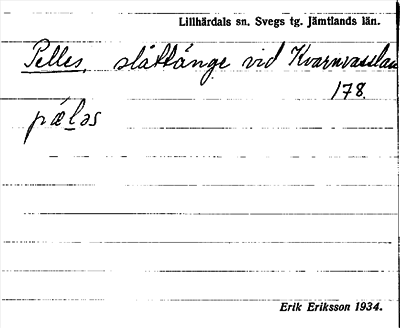 Lillhärdals sn. Svegs tg. Jämtlands län.
Pelles, slåttänge vid Kvarnvasslan
178.
pæ̀ləs
Erik Eriksson 1934.